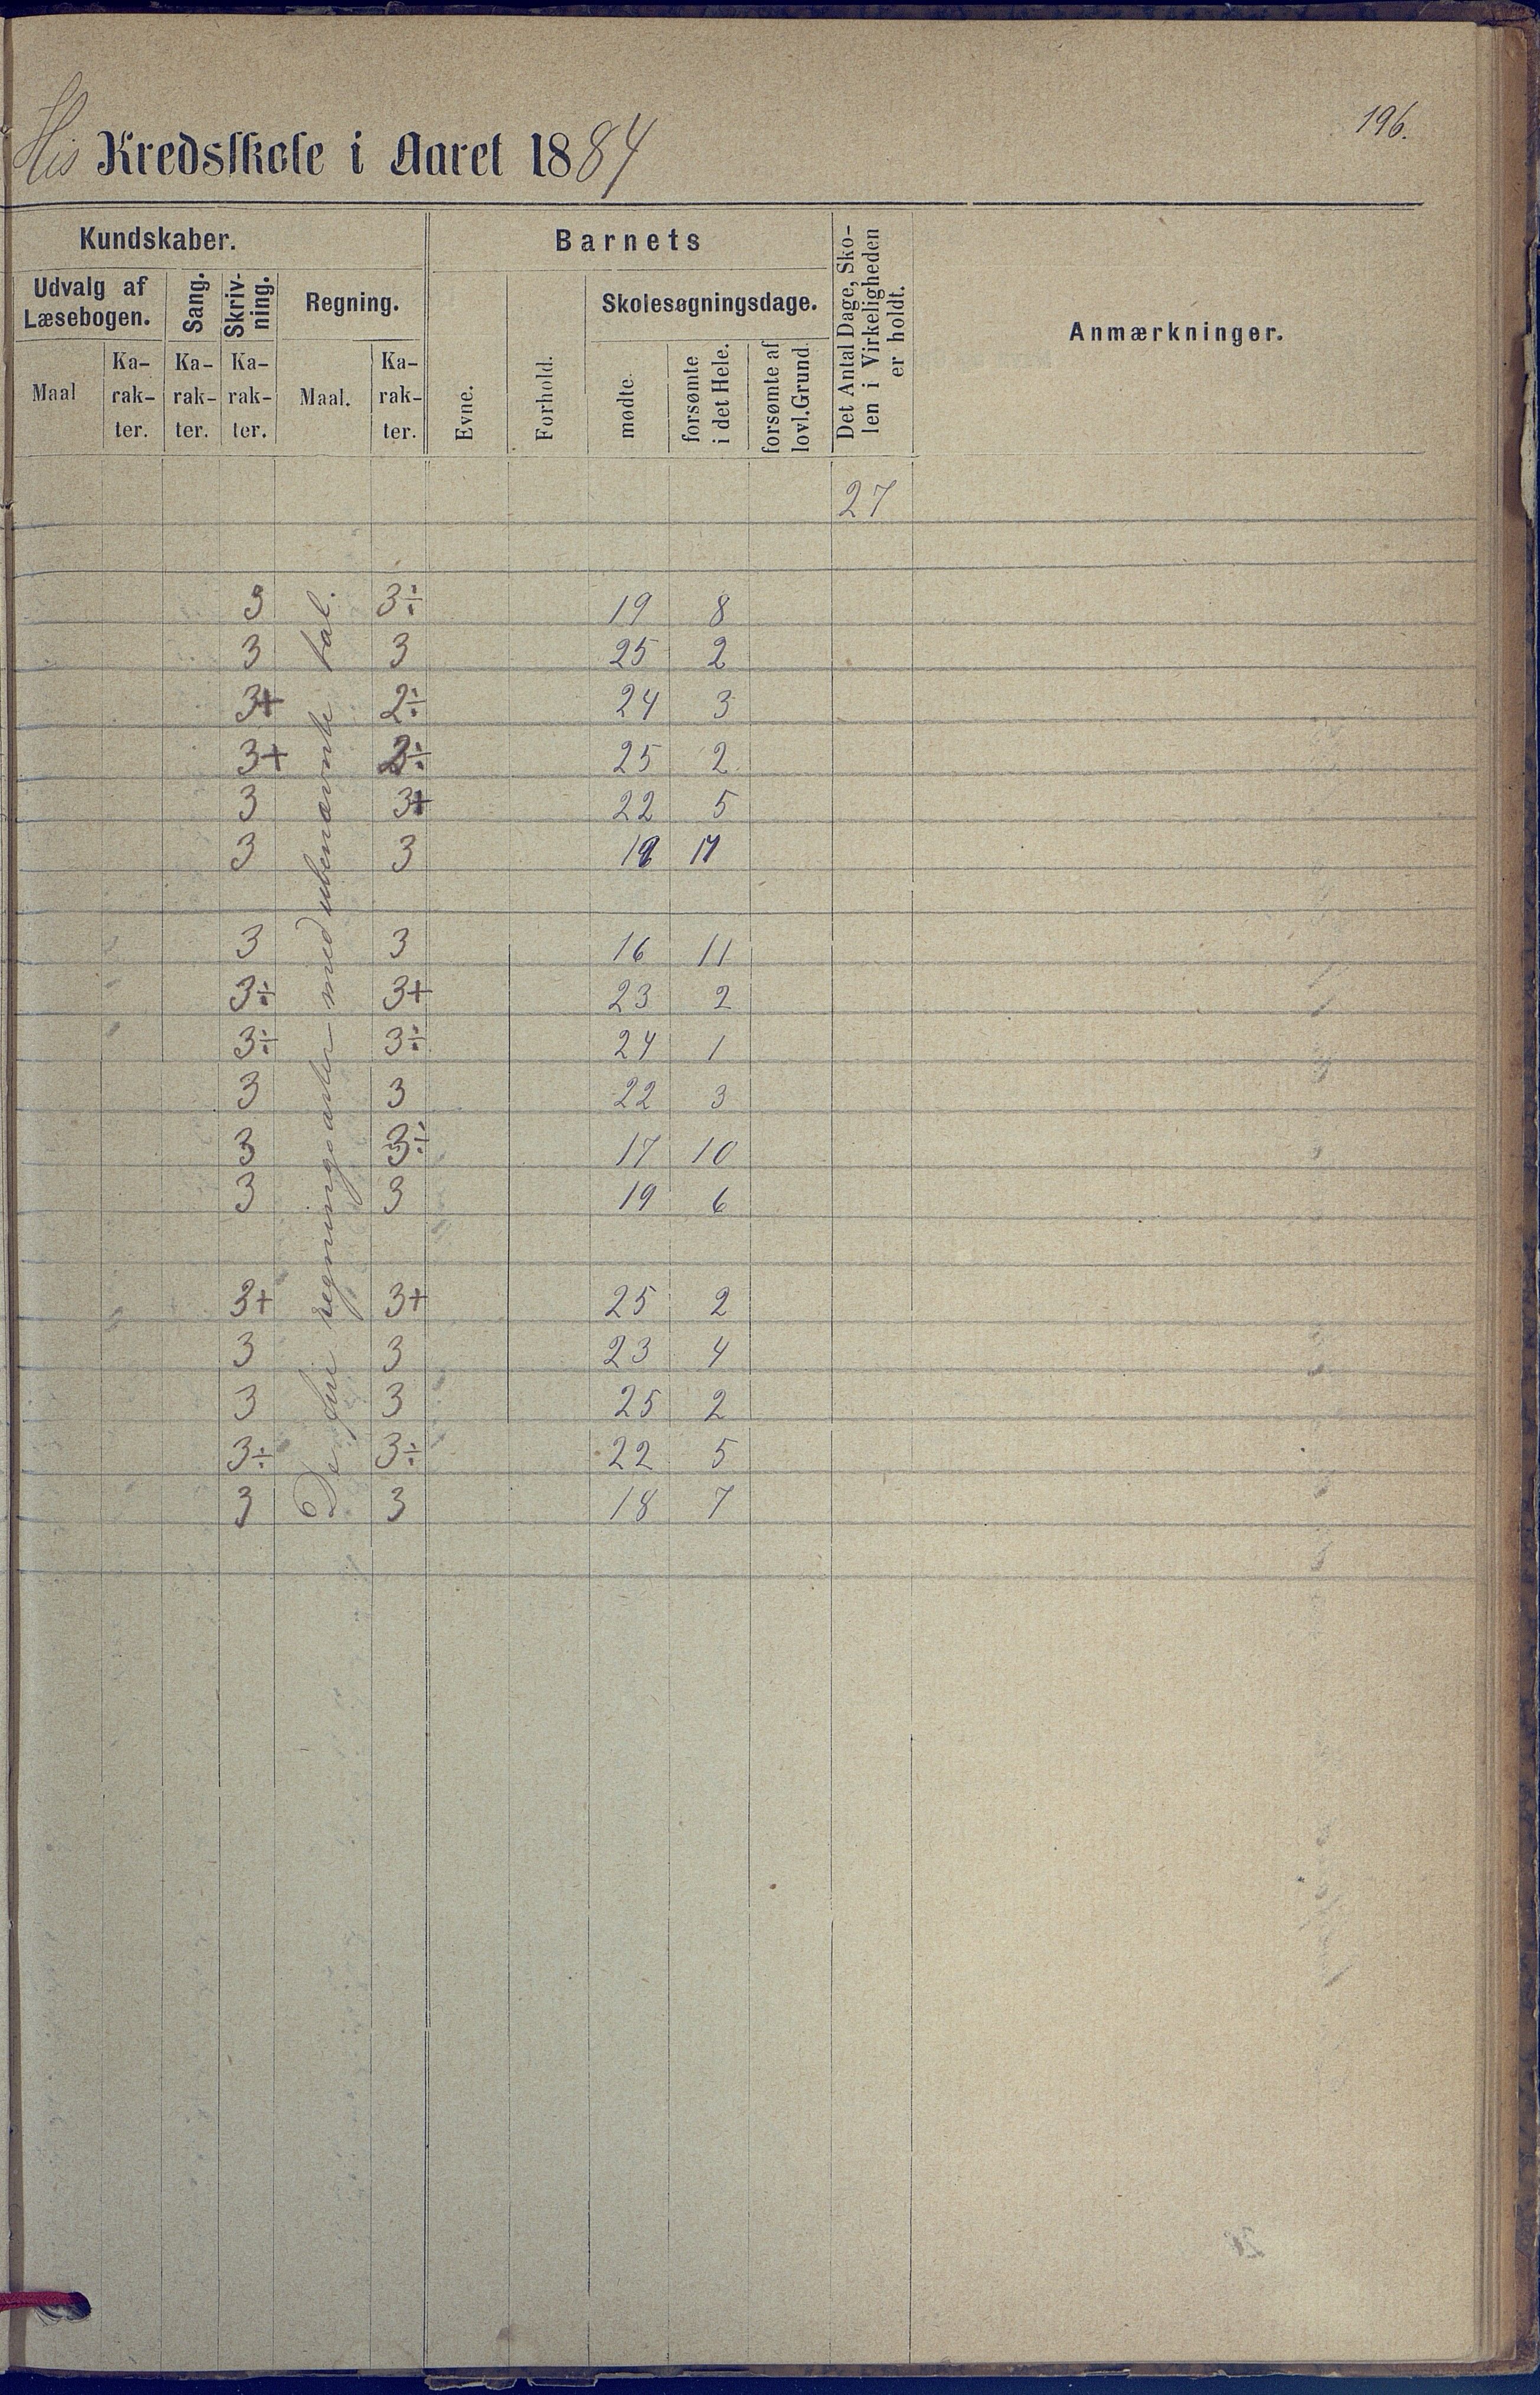 His Kredsskole i Aaret 1884
196.
Kundskaber.
Barnets
Det Antal Dage, Sko-
len i Virkeligheden
er holdt.
Anmærkninger.
Udvalg af
Læsebogen.
Sang.
Skriv-
ning.
Regning.
Evne.
Forhold.
Skolesøgningsdage.
Maal
Ka-
rak-
ter.
Ka-
rak-
ter.
Ka-
rak-
ter.
Maal.
Ka-
rak-
ter.
mødte.
forsømte
i det Hele.
forsømte af
lovl. Grund.
27
De fire regningsarter med ubenævnte tal.
3 3÷ 19 8
3 3 25 2
3+ 2÷ 24 3
3+ 2÷ 25 2
3 3+ 22 5
3 3
3 3 16 11
3÷ 3+ 23 2
3÷ 3÷ 24 1
3 3 22 3
3 3÷ 17 10
3 3 19 6
3+ 3+ 25 2
3 3 23 4
3 3 25 2
3÷ 3÷ 22 5
3 3 18 7